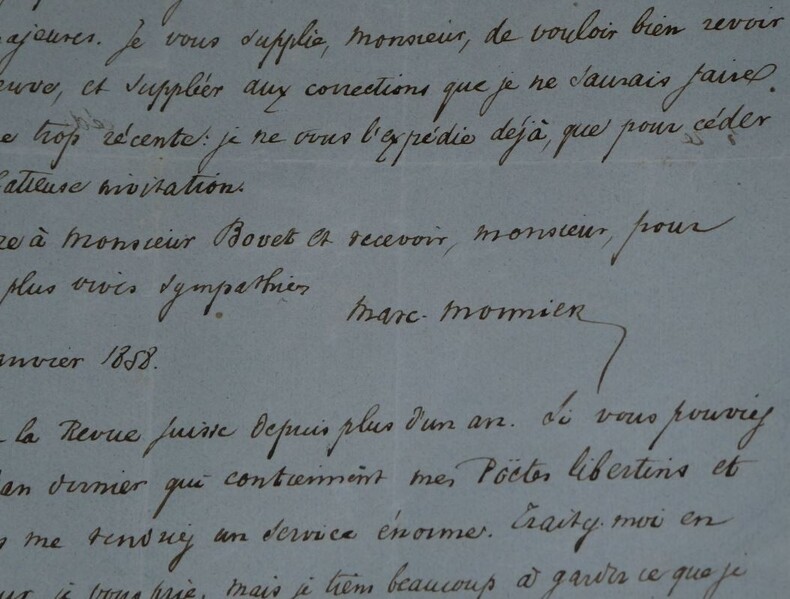 ajeures. Je vous supplie, monsieur, de vouloir bien revoir
euve, et suppliér aux corrections que je ne saurais faire.
e trop récente: je ne vous l'expédie déjà, que pour céder
latteuse invitation.
re à Monsieur Bovet et recevoir, monsieur, pour
plus vives sympathies
Marc-Monnier
anvier 1858.
la Revue Suisse depuis plus d'un an. Si vous pouviez
an dernier qui contiennent mes Poëtes libertins et
s me rendriez un service énorme. Traitez-moi en
ur, je vous prie, mais je tiens beaucoup à garder ce que je